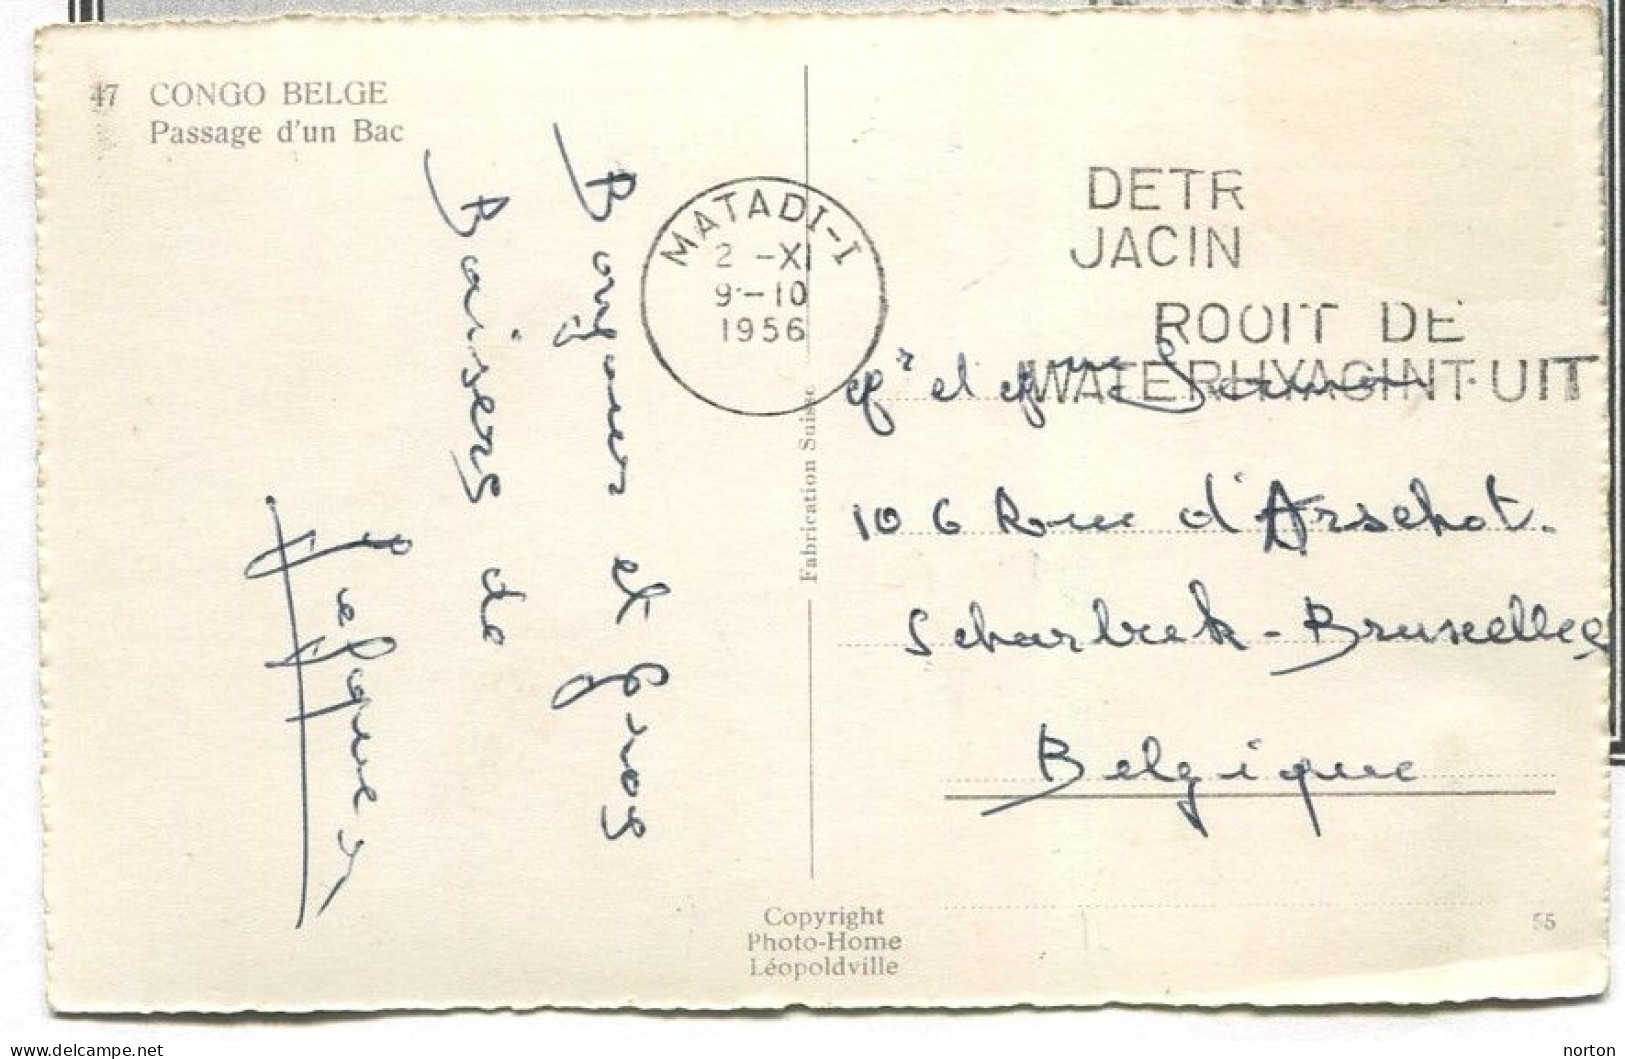 47 CONGO BELGE
Passage d'un Bac
Bonjour et Gros
Baisers de
Jacques
MATADI-I
2 -XI
9-10
1956
DETR
JACIN
ROOIT DE
WATERHYACINT·UIT
et
106 Rue d'Arschot.
Scharbeek-Bruxelles
Belgique
Fabrication Suisse
Copyright
Photo-Home
Léopoldville
55
www.delcampe.net
norton